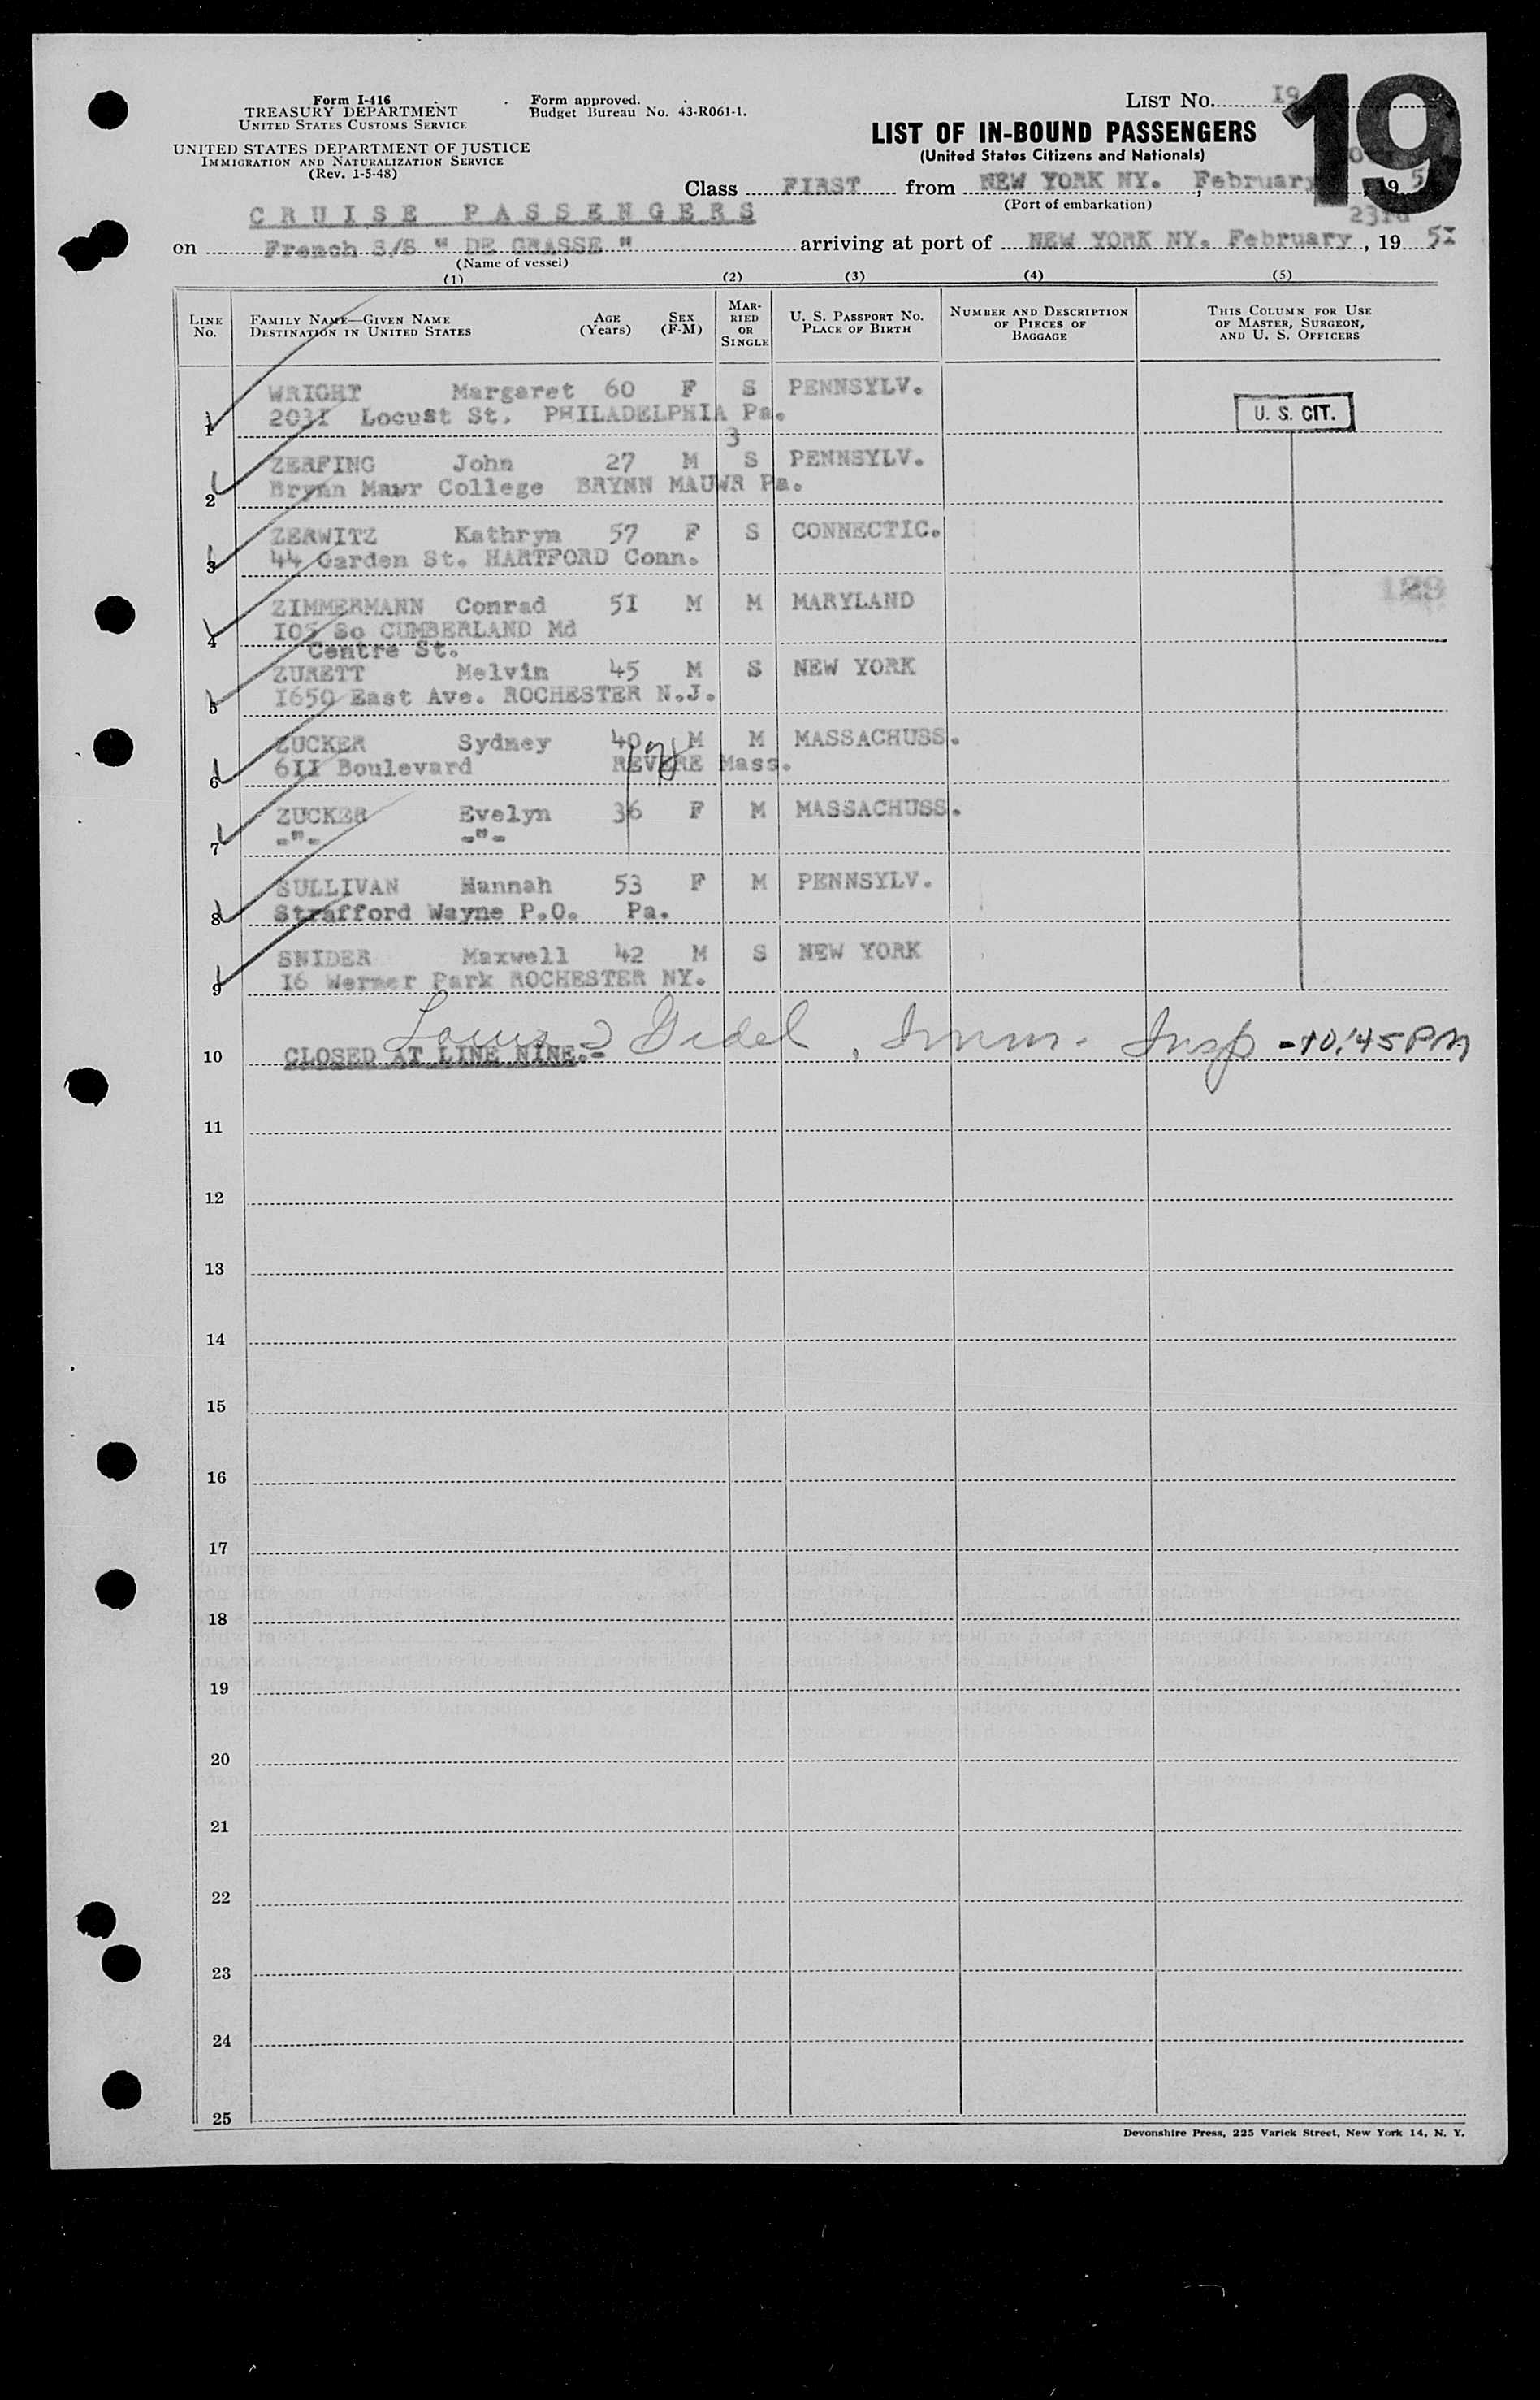 Form I-416
TREASURY DEPARTMENT
UNITED STATES CUSTOMS SERVICE
UNITED STATES DEPARTMENT OF JUSTICE
IMMIGRATION AND NATURALIZATION SERVICE
(Rev. 1-5-48)
Form approved.
Budget Bureau No. 43-R061-1.
LIST No. I9
19
LIST OF IN-BOUND PASSENGERS
(United States Citizens and Nationals)
Class FIRST from NEW YORK NY. February, 195
(Port of embarkation)
CRUISE PASSENGERS
23rd
on French S/S " DE GRASSE " arriving at port of NEW YORK NY. February, 19 5I
(Name of vessel)
(1) (2) (3) (4) (5)
LINE No. FAMILY NAME—GIVEN NAME DESTINATION IN UNITED STATES AGE (Years) SEX (F-M) MARRIED OR SINGLE U. S. PASSPORT No. PLACE OF BIRTH NUMBER AND DESCRIPTION OF PIECES OF BAGGAGE THIS COLUMN FOR USE OF MASTER, SURGEON, AND U. S. OFFICERS
WRIGHT Margaret 60 F S PENNSYLV.
1 203I Locust St. PHILADELPHIA Pa. U. S. CIT.
3
ZERFING John 27 M S PENNSYLV.
2 Brynn Mawr College BRYNN MAUWR Pa.
ZERWITZ Kathryn 57 F S CONNECTIC.
3 44 Garden St. HARTFORD Conn.
ZIMMERMANN Conrad 5I M M MARYLAND
4 I05 So CUMBERLAND Md
Centre St.
ZURETT Melvin 45 M S NEW YORK
5 I650 East Ave. ROCHESTER N.J.
ZUCKER Sydney 40 M M MASSACHUSS.
6 6II Boulevard REVERE Mass.
ZUCKER Evelyn 36 F M MASSACHUSS.
7 -"- -"-
SULLIVAN Hannah 53 F M PENNSYLV.
8 Strafford Wayne P.O. Pa.
SNIDER Maxwell 42 M S NEW YORK
9 I6 Werner Park ROCHESTER NY.
10 CLOSED AT LINE NINE.- Louis Gidel, Imm. Insp - 10:45 PM
11
12
13
14
15
16
17
18
19
20
21
22
23
24
25
Devonshire Press, 225 Varick Street, New York 14, N. Y.